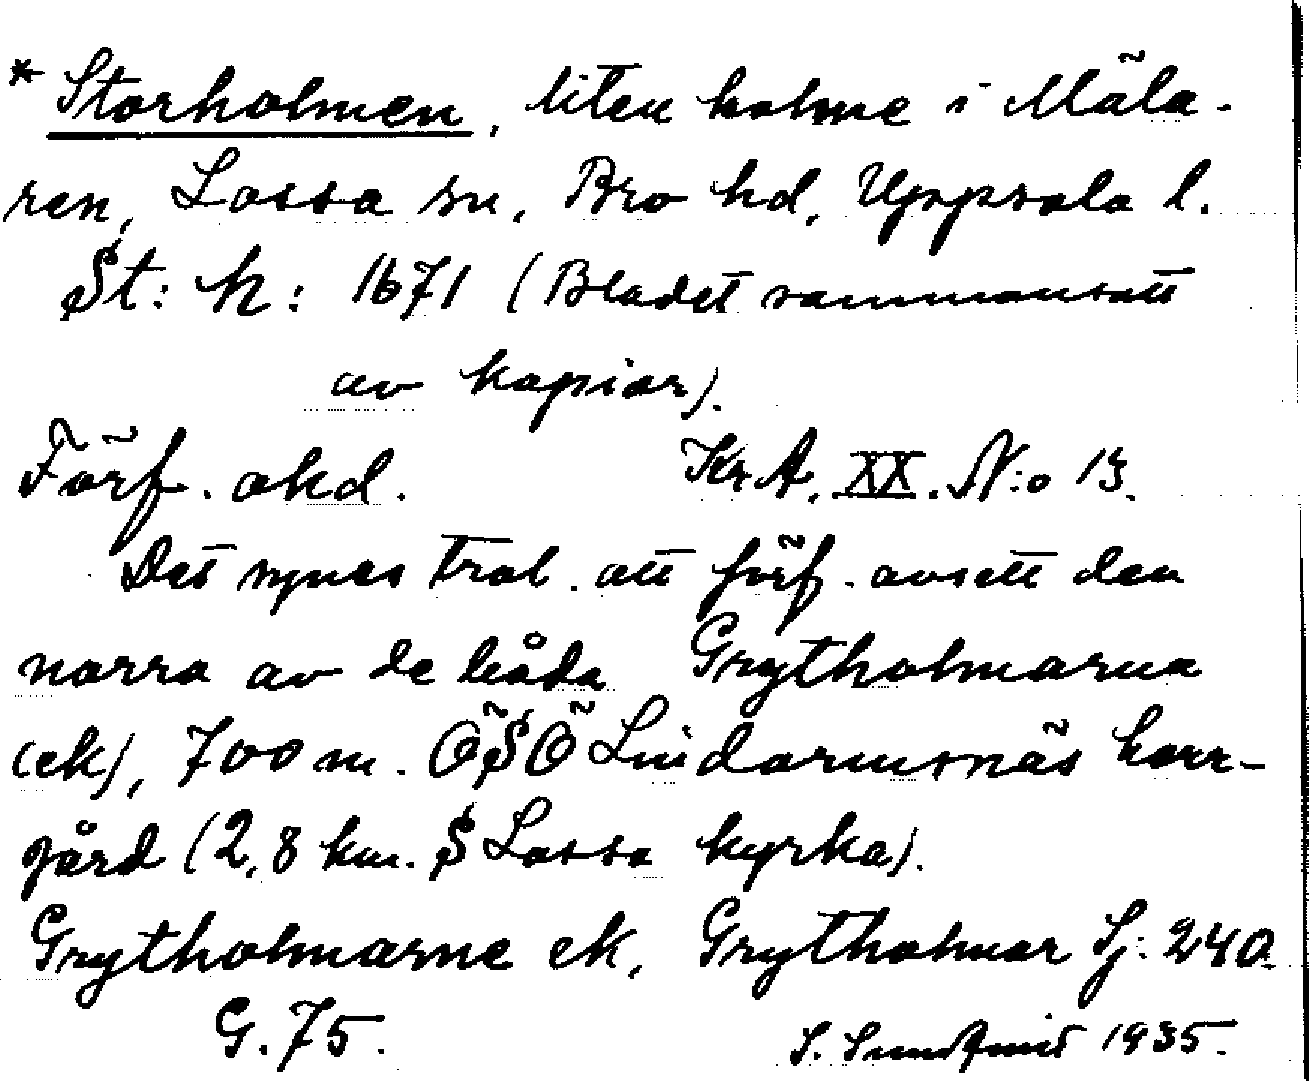 * Storholmen, liten holme i Mäla-
ren, Lossa sn, Bro hd, Uppsala l.
St: h: 1671 (Bladet sammansatt
av kopior).
Förf. okd. Kr. A. XX. N:o 13.
Det synes trol. att förf. avsett den
norra av de båda Grytholmarna
(ek), 700 m. ÖSÖ Lindormsnäs herr-
gård (2,8 km. S Lossa kyrka).
Grytholmarne ek, Grytholmar Sj. 240.
G. 75. S. Sundqvist 1935.